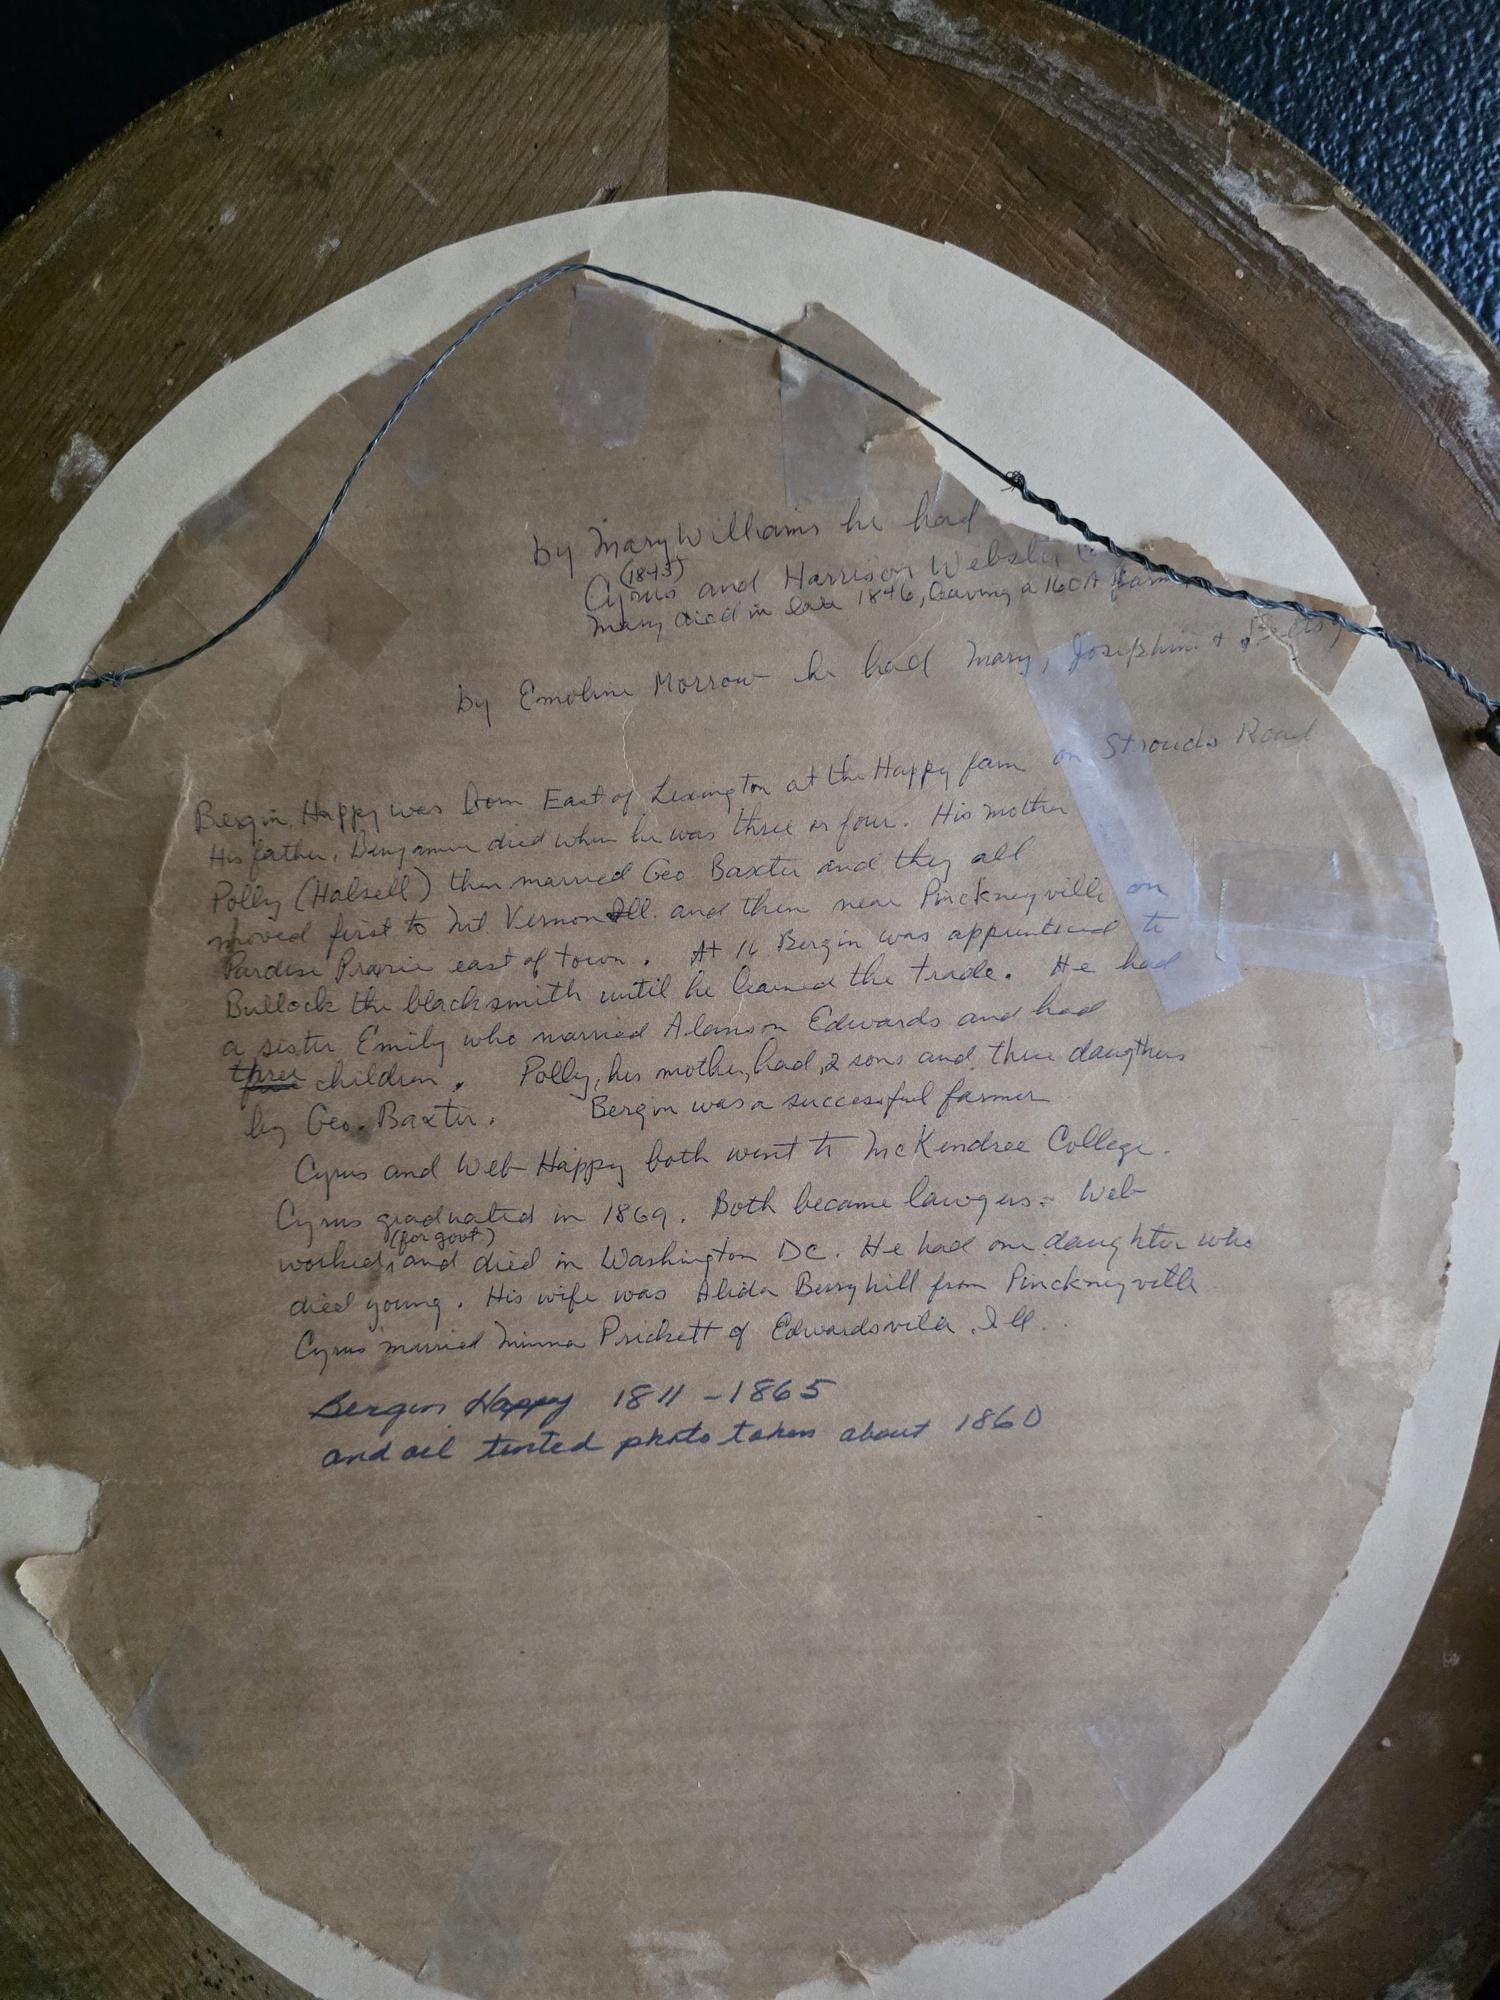 by Mary Williams he had
(1843)
Cyrus and Harrison Webster
Mary died in late 1846, leaving a 160 A farm
by Emoline Morrow he had Mary, Josephine &
Bergin Happy was born East of Lexington at the Happy farm on Strouds Road
His father, Benjamin died when he was three or four. His mother
Polly (Halsell) then married Geo. Baxter and they all
moved first to Mt. Vernon Ill. and then near Pinckneyville on
Pardise Prarie east of town. At 16 Bergin was apprenticed to
Bullock the blacksmith until he learned the trade. He had
a sister Emily who married Alanson Edwards and had
three children. Polly, his mother, had 2 sons and three daugthers
by Geo. Baxter. Bergin was a successful farmer
Cyrus and Web Happy both went to McKendree College.
Cyrus graduated in 1869. Both became lawyers. Web
(for govt)
worked and died in Washington DC. He had one daughter who
died young. His wife was Alida Berryhill from Pinckneyville
Cyrus married Minna Prickett of Edwardsville, Ill.
Bergin Happy 1811-1865
and oil tinted photo taken about 1860